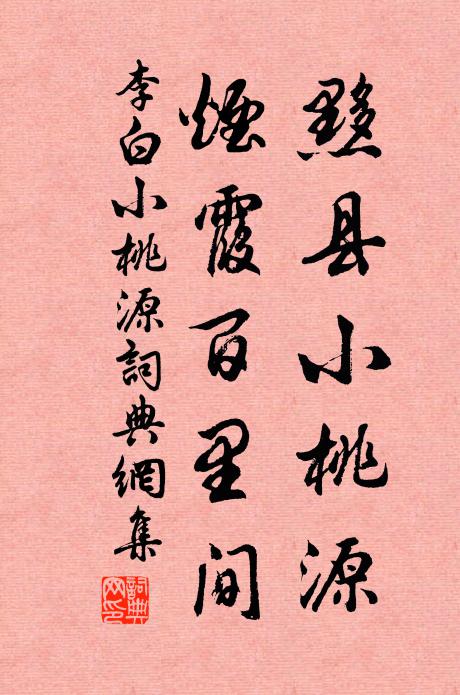 黟县小桃源
煙霞百里间
李白小桃源詞典網集
詞典網印